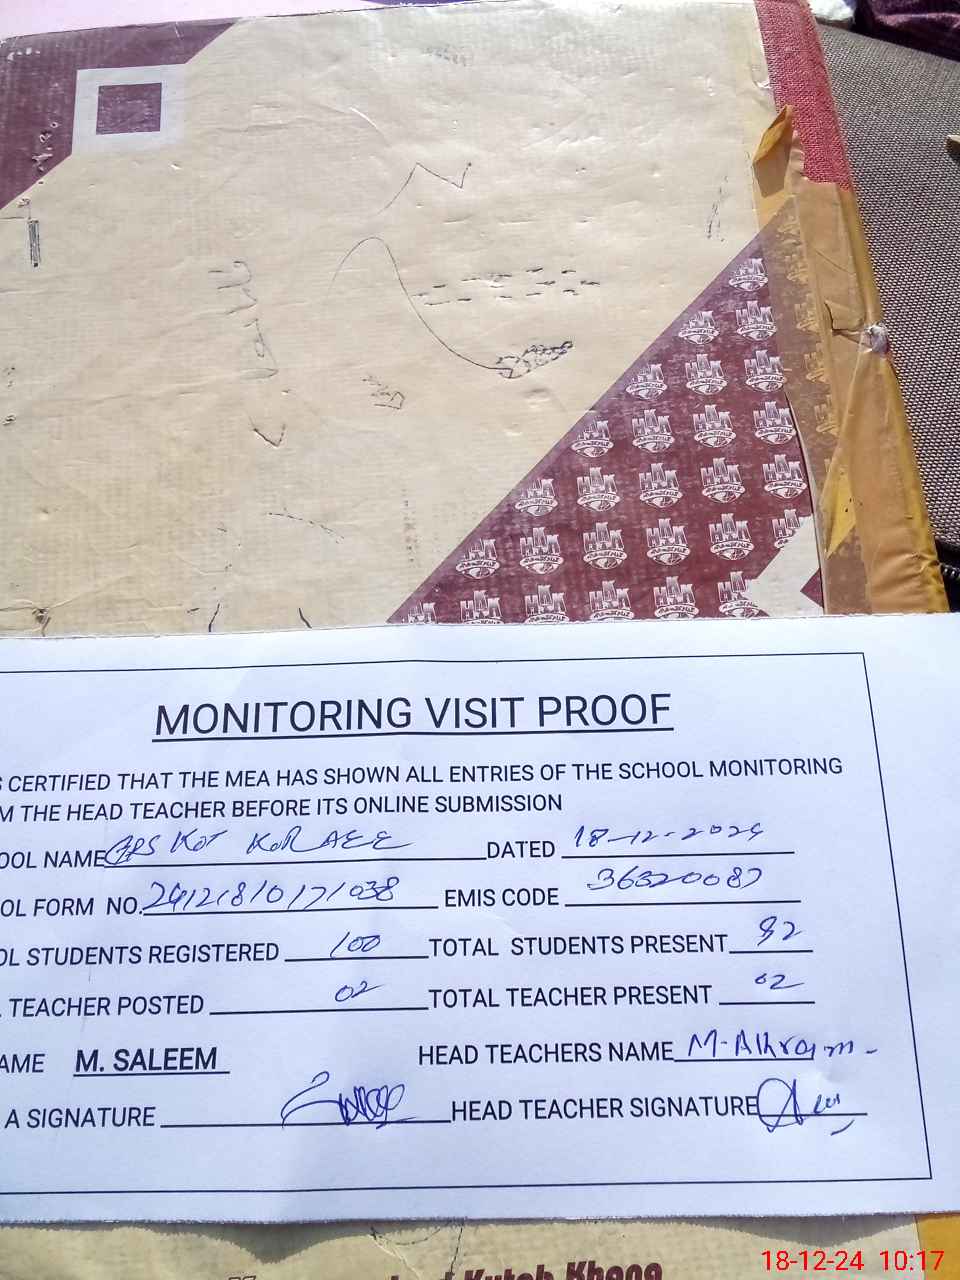 MONITORING VISIT PROOF
S CERTIFIED THAT THE MEA HAS SHOWN ALL ENTRIES OF THE SCHOOL MONITORING
M THE HEAD TEACHER BEFORE ITS ONLINE SUBMISSION
OOL NAME GPS KOT KORAEE DATED 18-12-2024
OL FORM NO. 2412181017/038 EMIS CODE 36320087
OL STUDENTS REGISTERED 100 TOTAL STUDENTS PRESENT 92
TEACHER POSTED 02 TOTAL TEACHER PRESENT 02
AME M. SALEEM HEAD TEACHERS NAME M-Akram-
A SIGNATURE HEAD TEACHER SIGNATURE
Kutab Khana
18-12-24 10:17